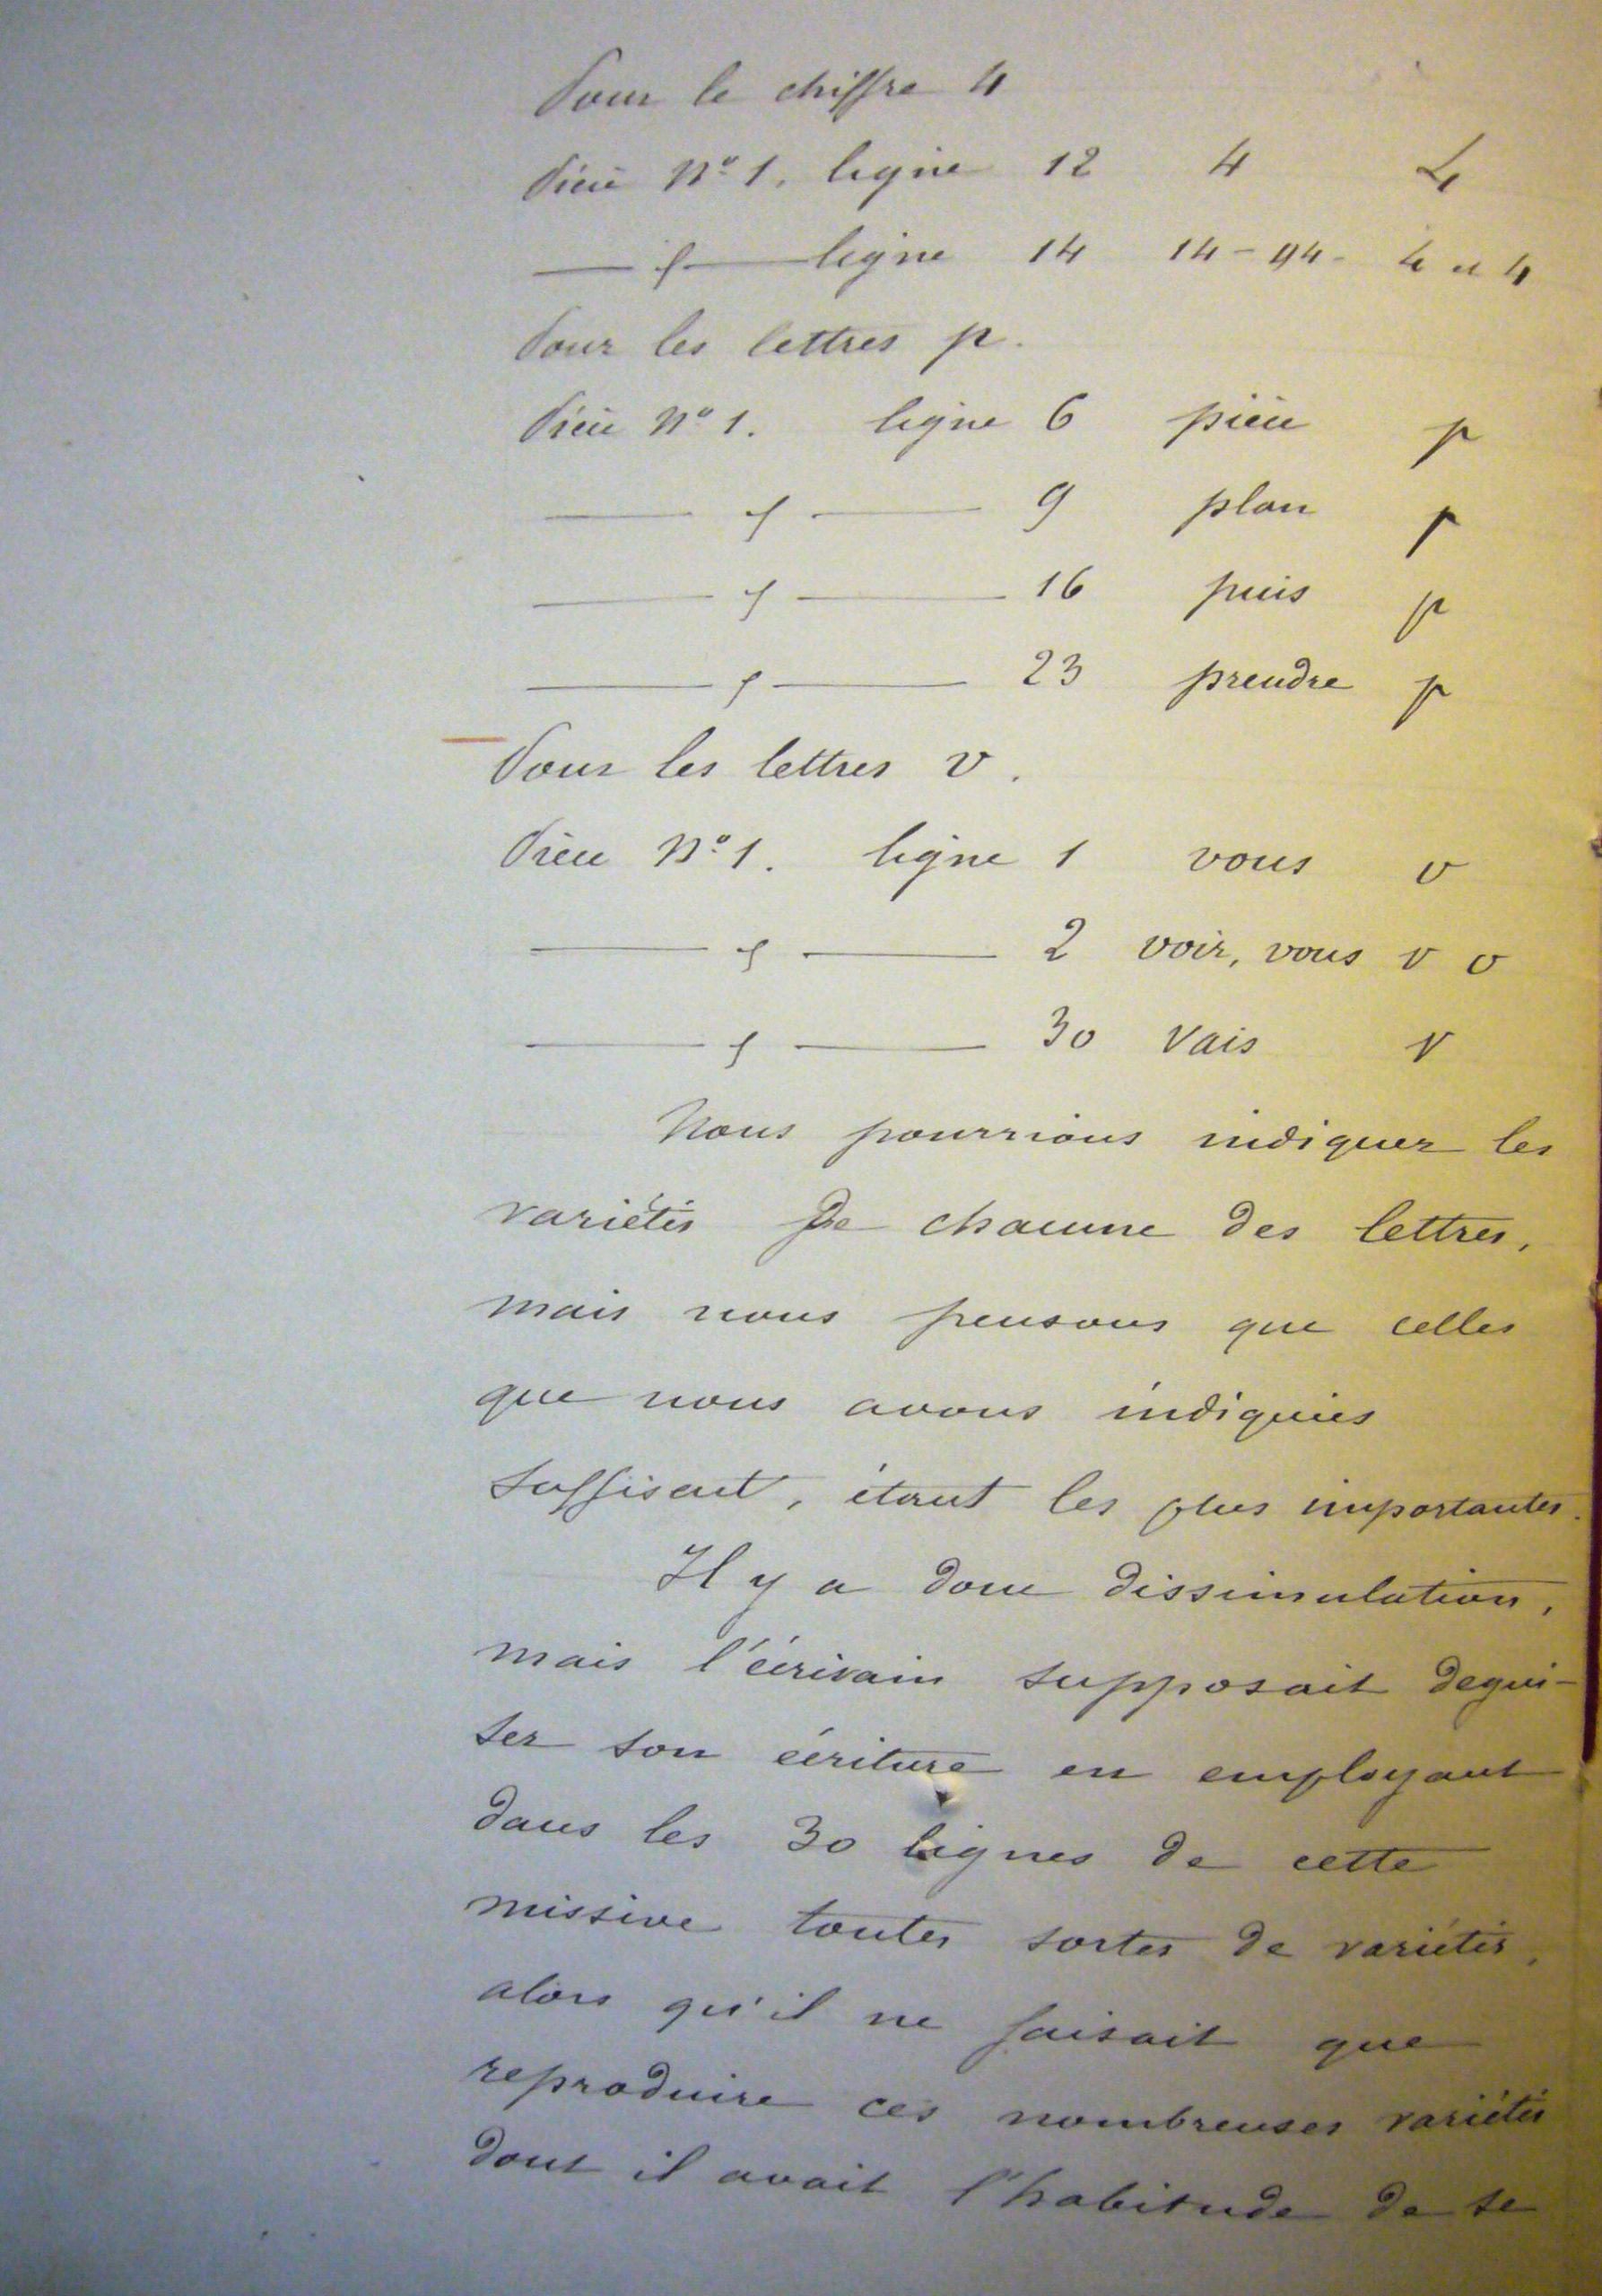 Pour le chiffre 4
Pièce N° 1. ligne 12 4 4
— " — ligne 14 14-94- 4 et 4
Pour les lettres p.
Pièce N° 1. ligne 6 pièce p
— " — 9 plan p
— " — 16 puis p
— " — 23 prendre p
Pour les lettres v.
Pièce N° 1. ligne 1 vous v
— " — 2 voir, vous v v
— " — 30 Vais v
Nous pourrions indiquer les
variétés de chacune des lettres,
mais nous pensons que celles
que nous avons indiquées
suffisent, étant les plus importantes.
Il y a donc dissimulation,
mais l'écrivain supposait degui-
ser son écriture en employant
dans les 30 lignes de cette
missive toutes sortes de variétés,
alors qu'il ne faisait que
reproduire ces nombreuses variétés
dont il avait l'habitude de se